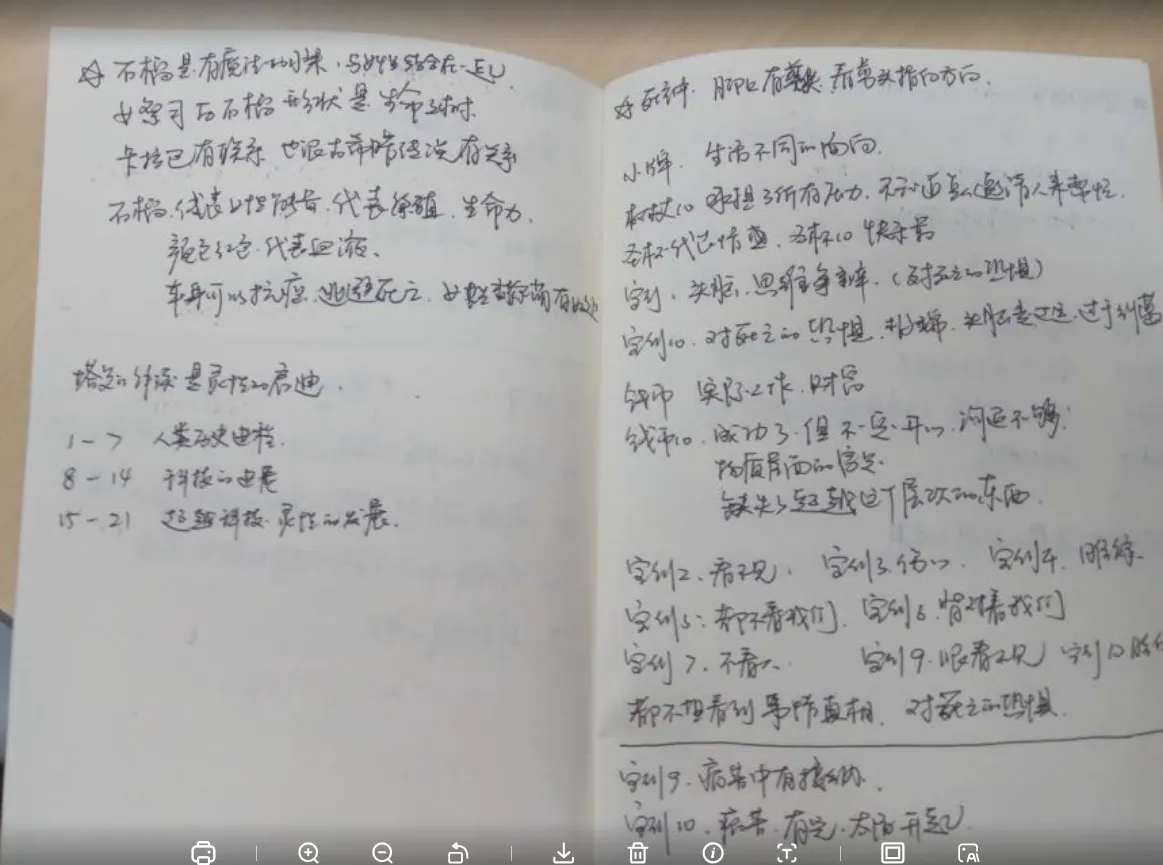 ☆ 石榴是有魔法的水果，与女性结合在一起
女祭司 与石榴 形状是 生命之树
卡巴 有联系 也跟古希腊传说有关系
石榴 代表女性 代表繁殖 生命力.
颜色红色. 代表血液.
可以抗癌 逃避死亡
塔罗的 解读 是灵性的启迪.
1-7 人类历史进程.
8-14 科技的进展
15-21 超越科技 灵性的发展.
☆ 死神. 脚上有 看 头指向方向.
小牌. 生活不同的面向.
权杖10 承担了所有压力. 不知道怎么邀请人来帮忙.
圣杯代表情感. 圣杯10 快乐
宝剑. 头脑. 思维 (对死亡的恐惧)
宝剑10. 对死亡的恐惧. 头脑 过于
钱币 实际工作. 财富
钱币10. 成功了. 但不一定开心. 沟通不够.
物质层面的富足.
缺失了超越这个层次的东西.
宝剑2. 看不见. 宝剑3. 伤心. 宝剑4.
宝剑5: 都不看我们. 宝剑6. 背对着我们
宝剑7. 不看 宝剑9. 眼看不见 宝剑10
都不想看到事情真相. 对死亡的恐惧.
宝剑9. 病苦中有接纳.
宝剑10. 有光. 太阳升起